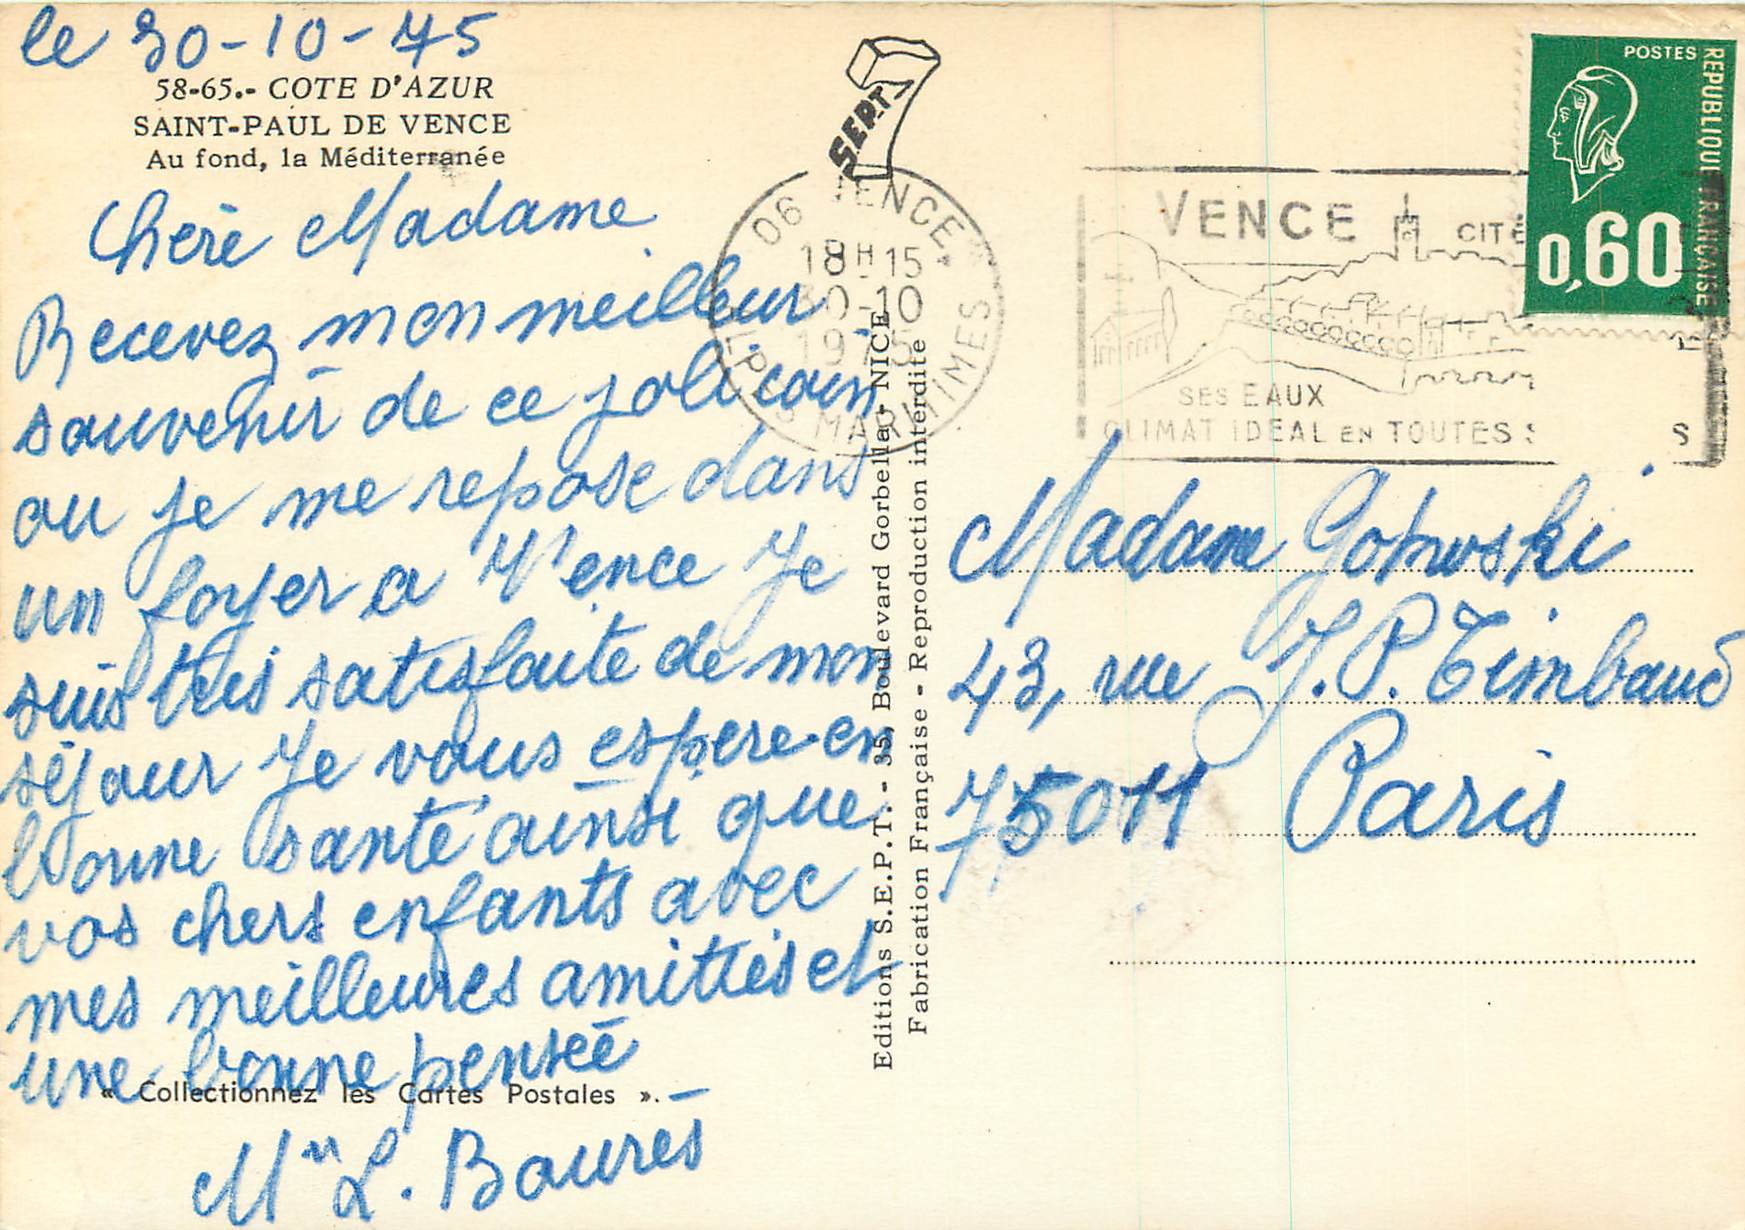 le 30-10-75
58-65.- COTE D'AZUR
SAINT-PAUL DE VENCE
Au fond, la Méditerranée
Chère Madame
Recevez mon meilleur
souvenir de ce joli coin
ou je me repose dans
un foyer a Vence Je
suis très satisfaite de mon
séjour Je vous espere en
bonne santé ainsi que
vos chers enfants avec
mes meilleures amitiés et
une bonne pensée
« Collectionnez les Cartes Postales ».
L. Bourés
S.E.P.T.
06 VENCE
18H15
30-10
1975
ALPES MARITIMES
Editions S.E.P.T. - 35, Boulevard Gorbella - NICE
Fabrication Française - Reproduction interdite
VENCE CITÉ
SES EAUX
CLIMAT IDEAL EN TOUTES S
POSTES
REPUBLIQUE FRANCAISE
0,60
Madame
43, rue J. P. Timbaud
75011 Paris